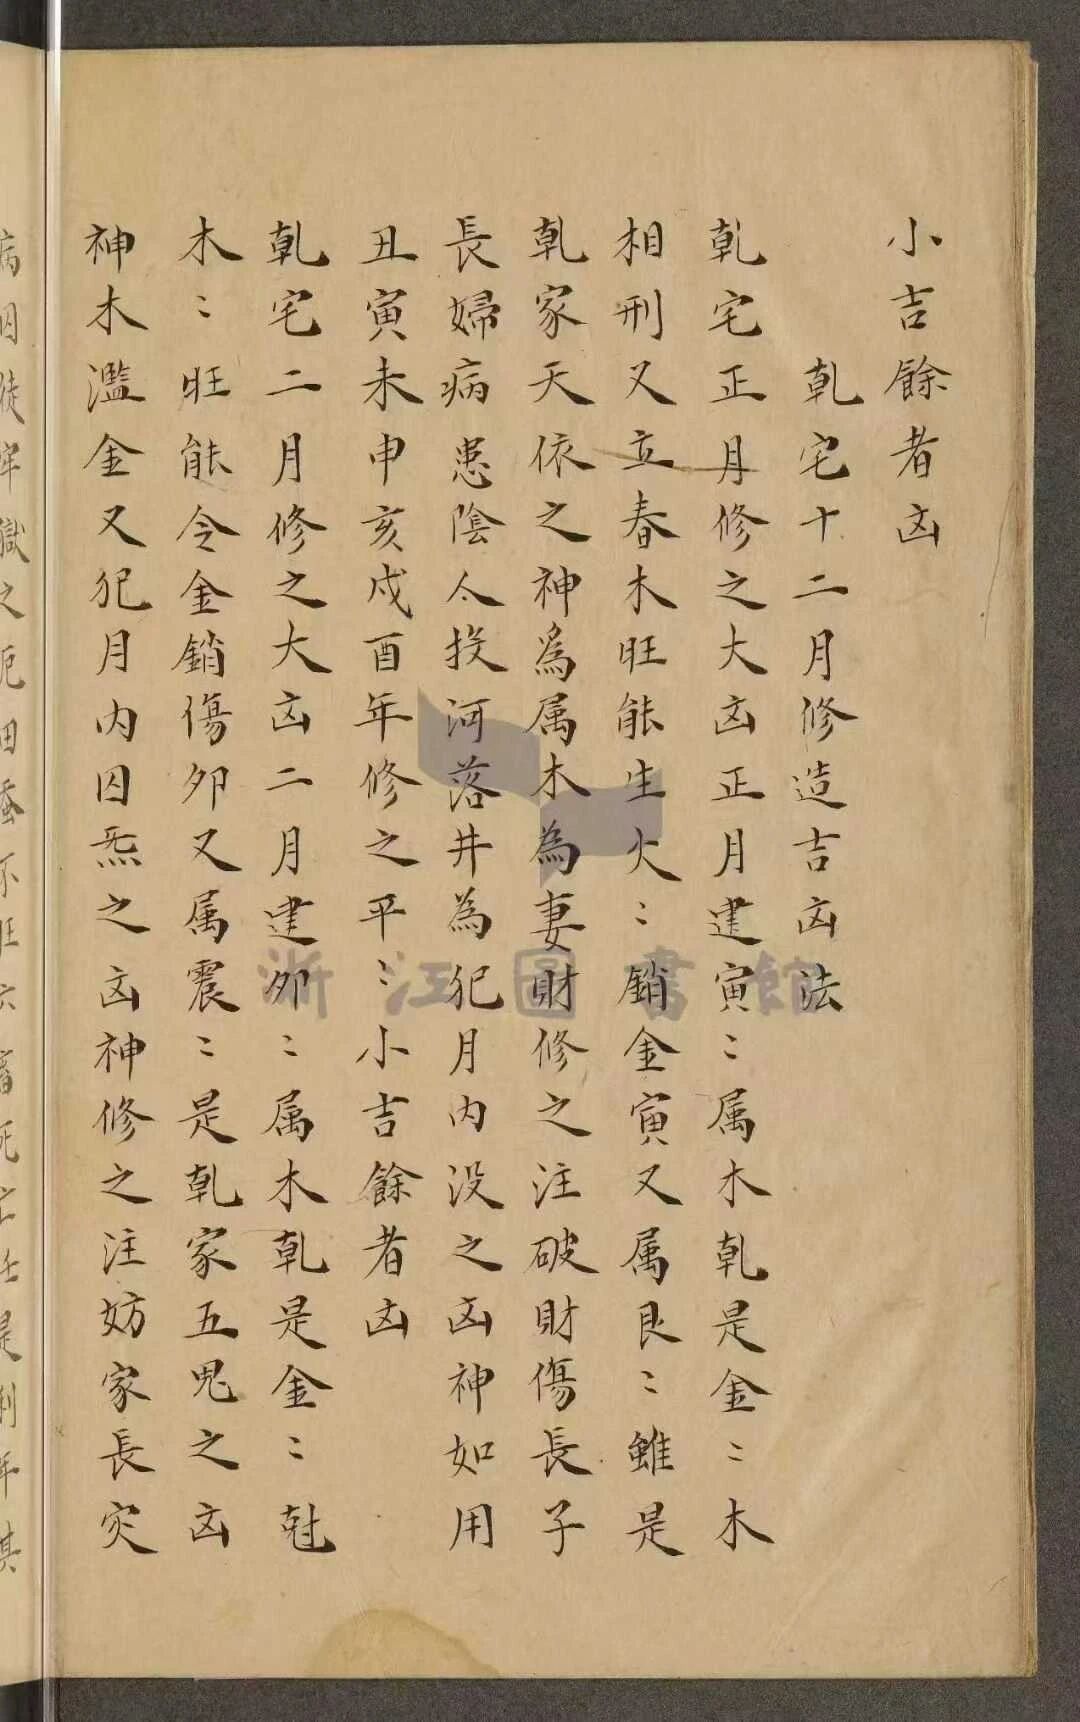 小吉餘者凶
乾宅十二月修造吉凶法
乾宅正月修之大凶正月建寅〻属木乾是金〻木
相刑又立春木旺能生火〻銷金寅又属艮〻雖是
乾家天依之神為属木為妻財修之注破財傷長子
長婦病患陰人投河落井為犯月内没之凶神如用
丑寅未申亥戌酉年修之平〻小吉餘者凶
乾宅二月修之大凶二月建卯〻属木乾是金〻尅
木〻旺能令金銷傷卯又属震〻是乾家五鬼之凶
神木濫金又犯月内囚炁之凶神修之注妨家長灾
病囚徒牢獄之厄田蚕不旺六畜死亡
浙江圖書館